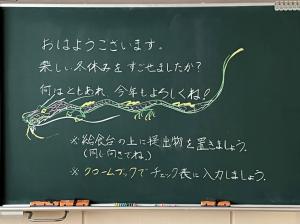 おはようございます。
楽しい冬休みをすごせましたか?
何はともあれ、今年もよろしくね!
※給食台の上に提出物を置きましょう。
(同じ向きでね)
※クロームブックでチェック表に入力しましょう。